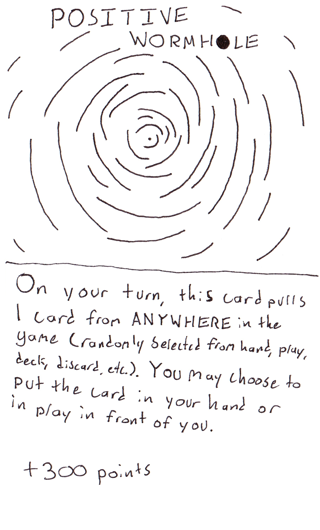 POSITIVE
WORMHOLE
On your turn, this card pulls
1 card from ANYWHERE in the
game (randonly selected from hand, play,
deck, discard, etc.). You may choose to
put the card in your hand or
in play in front of you.
+300 points